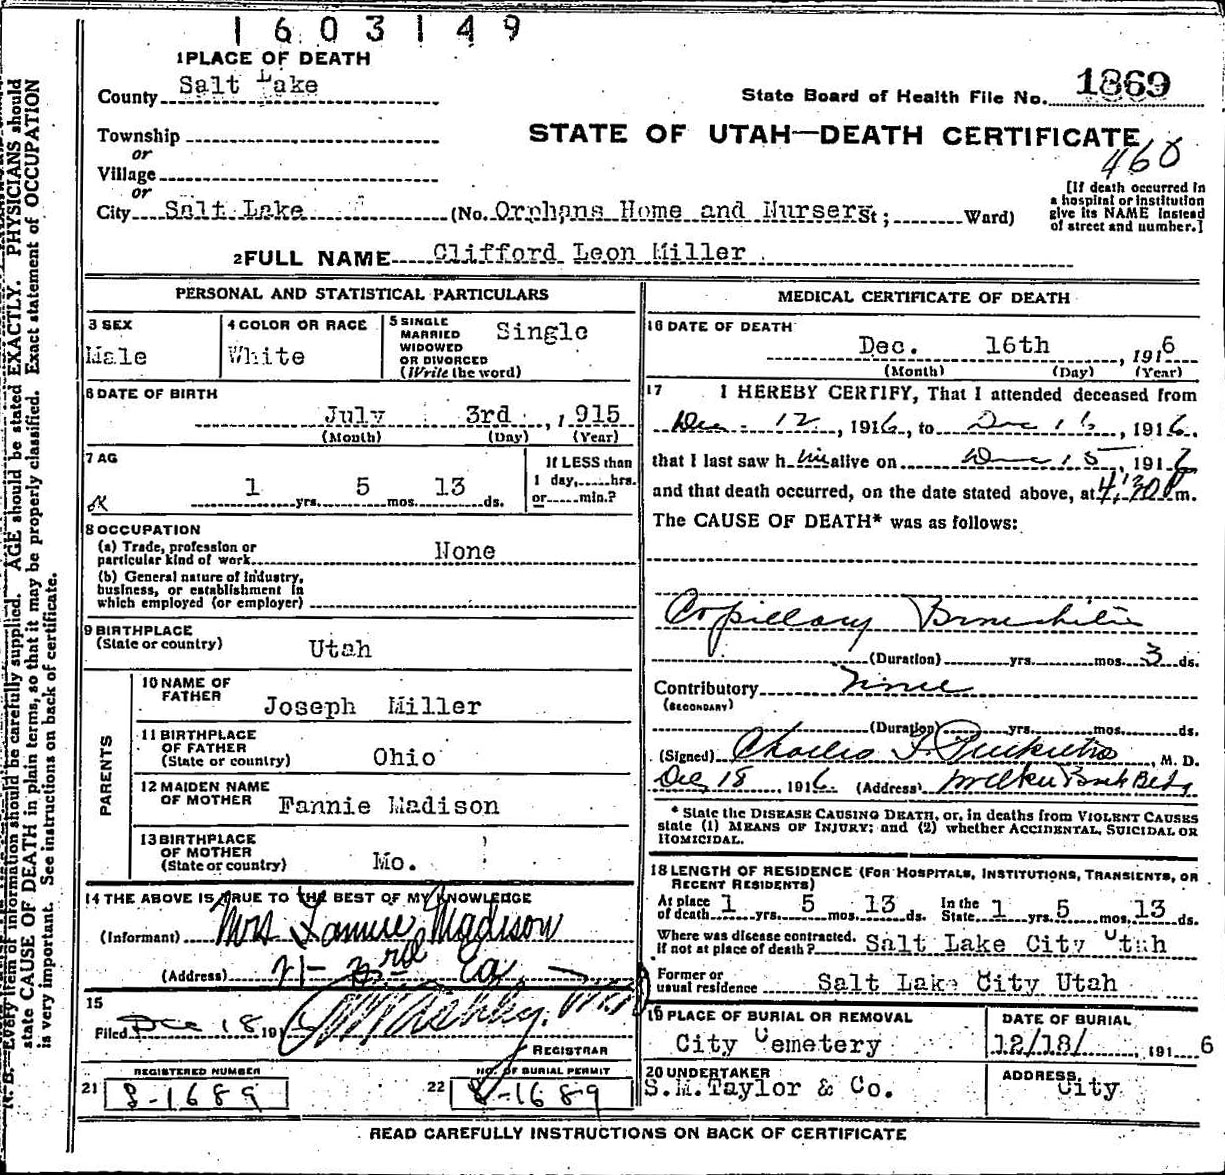 1603149
1 PLACE OF DEATH
County Salt Lake
State Board of Health File No. 1869
Township
or
STATE OF UTAH—DEATH CERTIFICATE
460
Village
or
City Salt Lake (No. Orphans Home and Nursery St; Ward)
[If death occurred in
a hospital or institution
give its NAME instead
of street and number.]
2 FULL NAME Clifford Leon Miller
PERSONAL AND STATISTICAL PARTICULARS
3 SEX
Male
4 COLOR OR RACE
White
5 SINGLE
MARRIED
WIDOWED
OR DIVORCED
(Write the word)
Single
6 DATE OF BIRTH
July 3rd , 1915
(Month) (Day) (Year)
7 AG
1 yrs. 5 mos. 13 ds.
If LESS than
1 day, hrs.
or min.?
8 OCCUPATION
(a) Trade, profession or
particular kind of work None
(b) General nature of industry,
business, or establishment in
which employed (or employer)
9 BIRTHPLACE
(State or country) Utah
PARENTS
10 NAME OF
FATHER Joseph Miller
11 BIRTHPLACE
OF FATHER
(State or country) Ohio
12 MAIDEN NAME
OF MOTHER Fannie Madison
13 BIRTHPLACE
OF MOTHER
(State or country) Mo.
14 THE ABOVE IS TRUE TO THE BEST OF MY KNOWLEDGE
(Informant) Mrs Madison
(Address) 3rd
15
Filed Dec 18 191
REGISTRAR
REGISTERED NUMBER
21 8-1689
NO. OF BURIAL PERMIT
22 8-1689
MEDICAL CERTIFICATE OF DEATH
16 DATE OF DEATH
Dec. 16th , 1916
(Month) (Day) (Year)
17 I HEREBY CERTIFY, That I attended deceased from
Dec. 12, 1916, to Dec 16, 1916.
that I last saw him alive on Dec 15, 1916
and that death occurred, on the date stated above, at 4:30 P m.
The CAUSE OF DEATH* was as follows:
Capillary Bronchitis
(Duration) yrs. mos. 3 ds.
Contributory None
(SECONDARY)
(Duration) yrs. mos. ds.
(Signed) Charles F. , M. D.
Dec 18, 1916. (Address) Walker Bank Bldg
* State the DISEASE CAUSING DEATH, or, in deaths from VIOLENT CAUSES
state (1) MEANS OF INJURY; and (2) whether ACCIDENTAL, SUICIDAL OR
HOMICIDAL.
18 LENGTH OF RESIDENCE (FOR HOSPITALS, INSTITUTIONS, TRANSIENTS, OR
RECENT RESIDENTS)
At place
of death 1 yrs. 5 mos. 13 ds. In the
State 1 yrs. 5 mos. 13 ds.
Where was disease contracted.
if not at place of death? Salt Lake City Utah
Former or
usual residence Salt Lake City Utah
19 PLACE OF BURIAL OR REMOVAL
City Cemetery
DATE OF BURIAL
12/18/ , 1916
20 UNDERTAKER
S.M.Taylor & Co.
ADDRESS
City
READ CAREFULLY INSTRUCTIONS ON BACK OF CERTIFICATE
N. B.—Every item of information should be carefully supplied. AGE should be stated EXACTLY. PHYSICIANS should
state CAUSE OF DEATH in plain terms, so that it may be properly classified. Exact statement of OCCUPATION
is very important. See instructions on back of certificate.